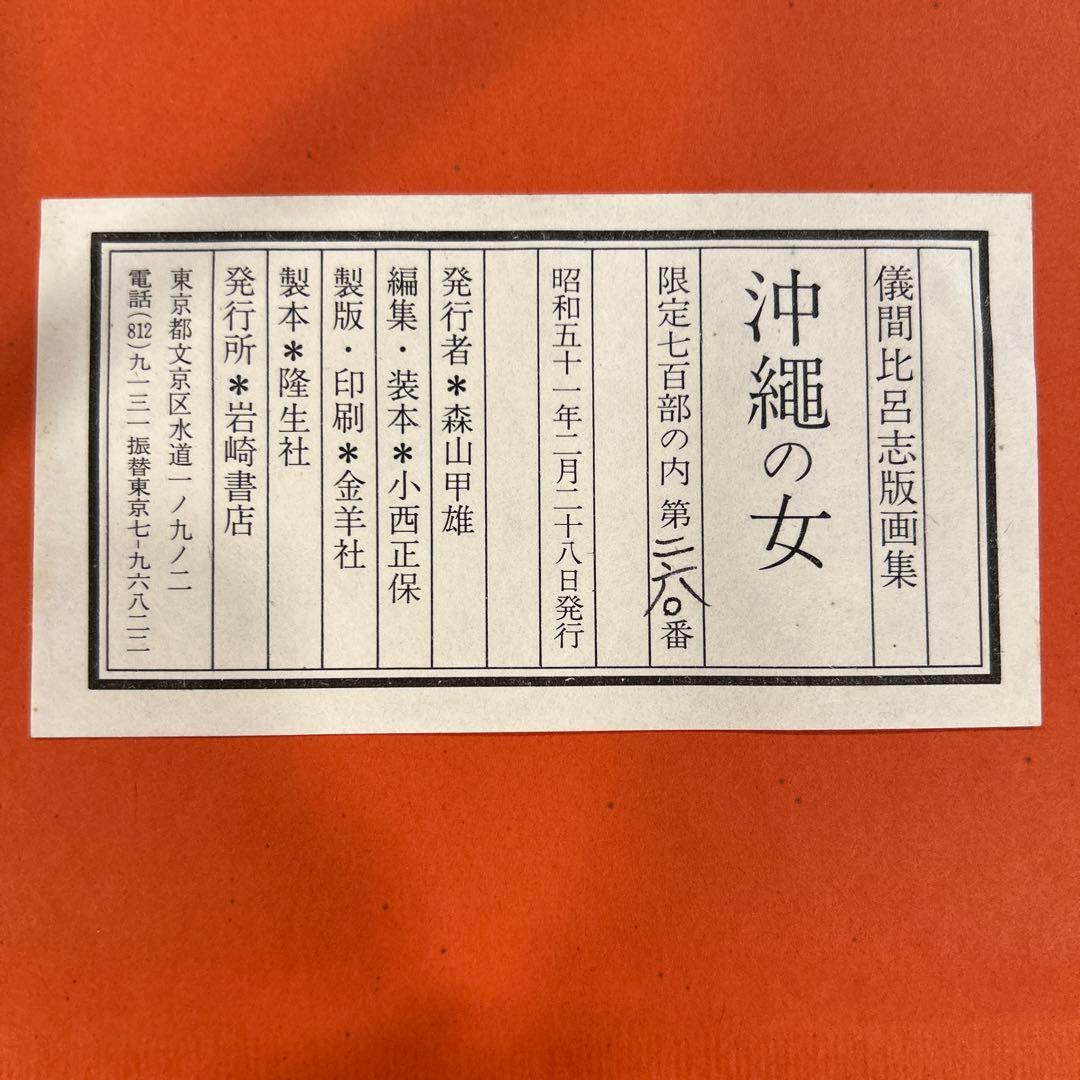 儀間比呂志版画集
沖繩の女
限定七百部の内 第二六〇番
昭和五十一年二月二十八日発行
発行者＊森山甲雄
編集・装本＊小西正保
製版・印刷＊金羊社
製本＊隆生社
発行所＊岩崎書店
東京都文京区水道一ノ九ノ二
電話(812)九一三一 振替東京七-九六八二二